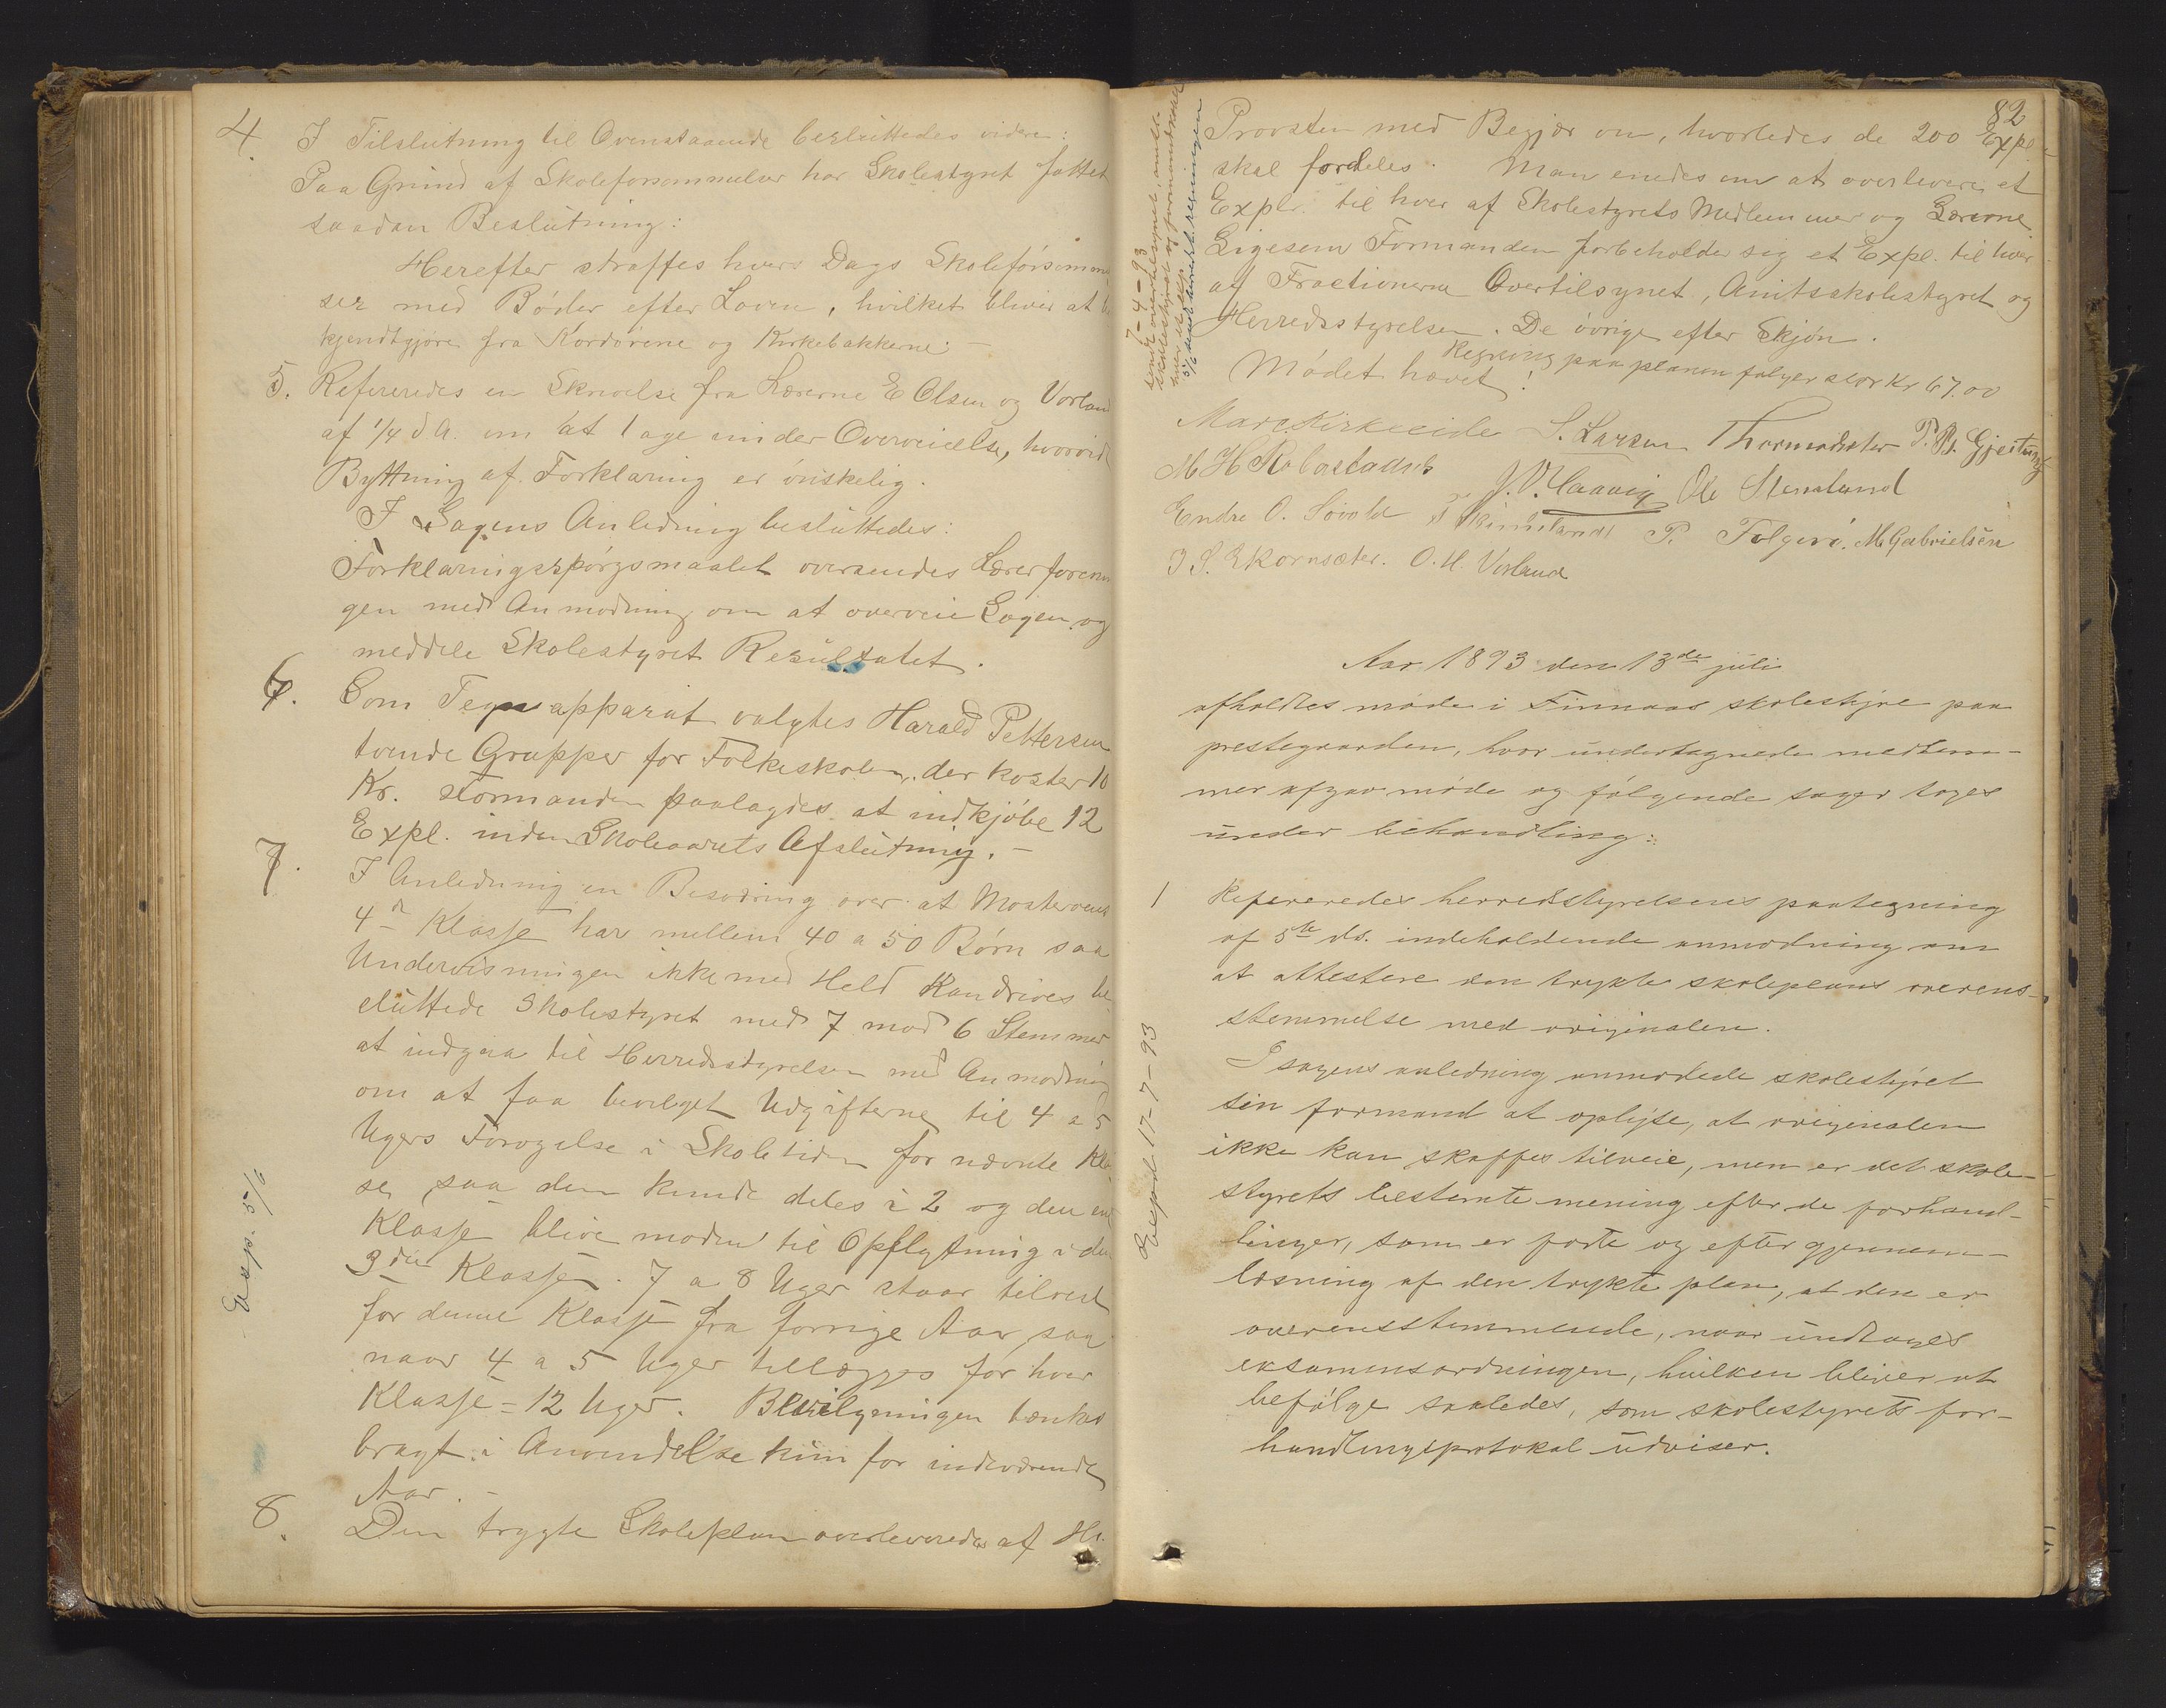 4. I Tilslutning til Ovenstaaende besluttedes videre:
Paa Grund af Skoleforsømmelser har Skolestyret fattet
saadan Beslutning:
Herefter straffes hvers Dags Skoleforsømmel
ser med Bøder efter Loven, hvilket bliver at be
kjendtgjøre fra Kordørene og Kirkebakkerne. —
5. Refereredes en Skrivelse fra Lærerne E Olsen og Vorland
af 1/4 d A. om at tage under Overveielse, hvorvidt
Byttning af Forklaring er ønskelig.
I Sagens Anledning besluttedes:
Forklaringsspørgsmaalet oversendes Lærerforenin
gen med Anmodning om at overveie Sagen og
meddele Skolestyret Resultatet.
6. Som Tegneapparat valgtes Harald Pettersen
tvende Grupper for Folkeskolen, der koster 10
Kr. Formanden paalagdes at indkjøbe 12
Expl. inden Skoleaarets Afslutning. —
7. I Anledning en Besværing over at Mosterøens
4de Klasse har mellem 40 a 50 Børn saa
Undervisningen ikke med Held kan drives be
sluttede Skolestyret med 7 mod 6 Stemmer
at indgaa til Herredsstyrelsen med Anmodning
om at faa bevilget Udgifterne til 4 a 5
Ugers Forøgelse i Skoletiden for nævnte Klas
se, saa den kunde deles i 2 og den ene
Klasse blive moden til Opflytning i den
3die Klasse. 7 a 8 Uger staar tilrest
for denne Klasse fra forrige Aar, saa
naar 4 a 5 Uger tillægges faar hver
Klasse = 12 Uger. Bevilgningen tænkes
bragt i Anvendelse kun for indeværende
Aar. —
8. Den trygte Skoleplan overleveredes af Hr.
Exp. 5/6
82
Provsten med Begjær om, hvorledes de 200 Expl.
skal fordeles. Man enedes om at overlevere et
Explr. til hver af Skolestyrets Medlemmer og Lærerne
Ligesom Formanden forbeholder sig et Expl. til hver
af Fractionerne Overtilsynet, Amtsskolestyret og
Herredsstyrelsen. De øvrige efter Skjøn.
Regning paa planen følger stor Kr 67.00
Mødet hævet!
7-4-93
sendt overtilsynet, amts
skolestyret og formandskabet
hver et exp.
5/6 sendt herredsk. regningen
Marc. Kirkeeide S. Larsen Thormodsæter P. B. Gjertung
M H Robarstadsb J. V. Haavig Ole Stenslund
Endre O. Løvold P. Folgerø. M. Gabrielsen
J S. Ekornsæter. O. H. Vorland
Aar 1893 den 13de juli
afholdtes møde i Finnaas skolestyre paa
prestegaarden, hvor undertegnede medlem-
mer afgav møde og følgende sager toges
under behandling:
1 Refereredes herredstyrelsens paategning
af 5te ds. indeholdende anmodning om
at attestere den trykte skoleplans overens-
stemmelse med originalen.
I sagens anledning anmodede skolestyret
sin formand at oplyse, at originalen
ikke kan skaffes tilveie, men er det skole-
styrets bestemte mening efter de forhand-
linger, som er førte og efter gjennem-
læsning af den trykte plan, at den er
overensstemmende, naar undtages
eksamensordningen, hvilken bliver at
befølge saaledes, som skolestyrets for-
handlingsprotokal udviser.
Exped 17-7-93